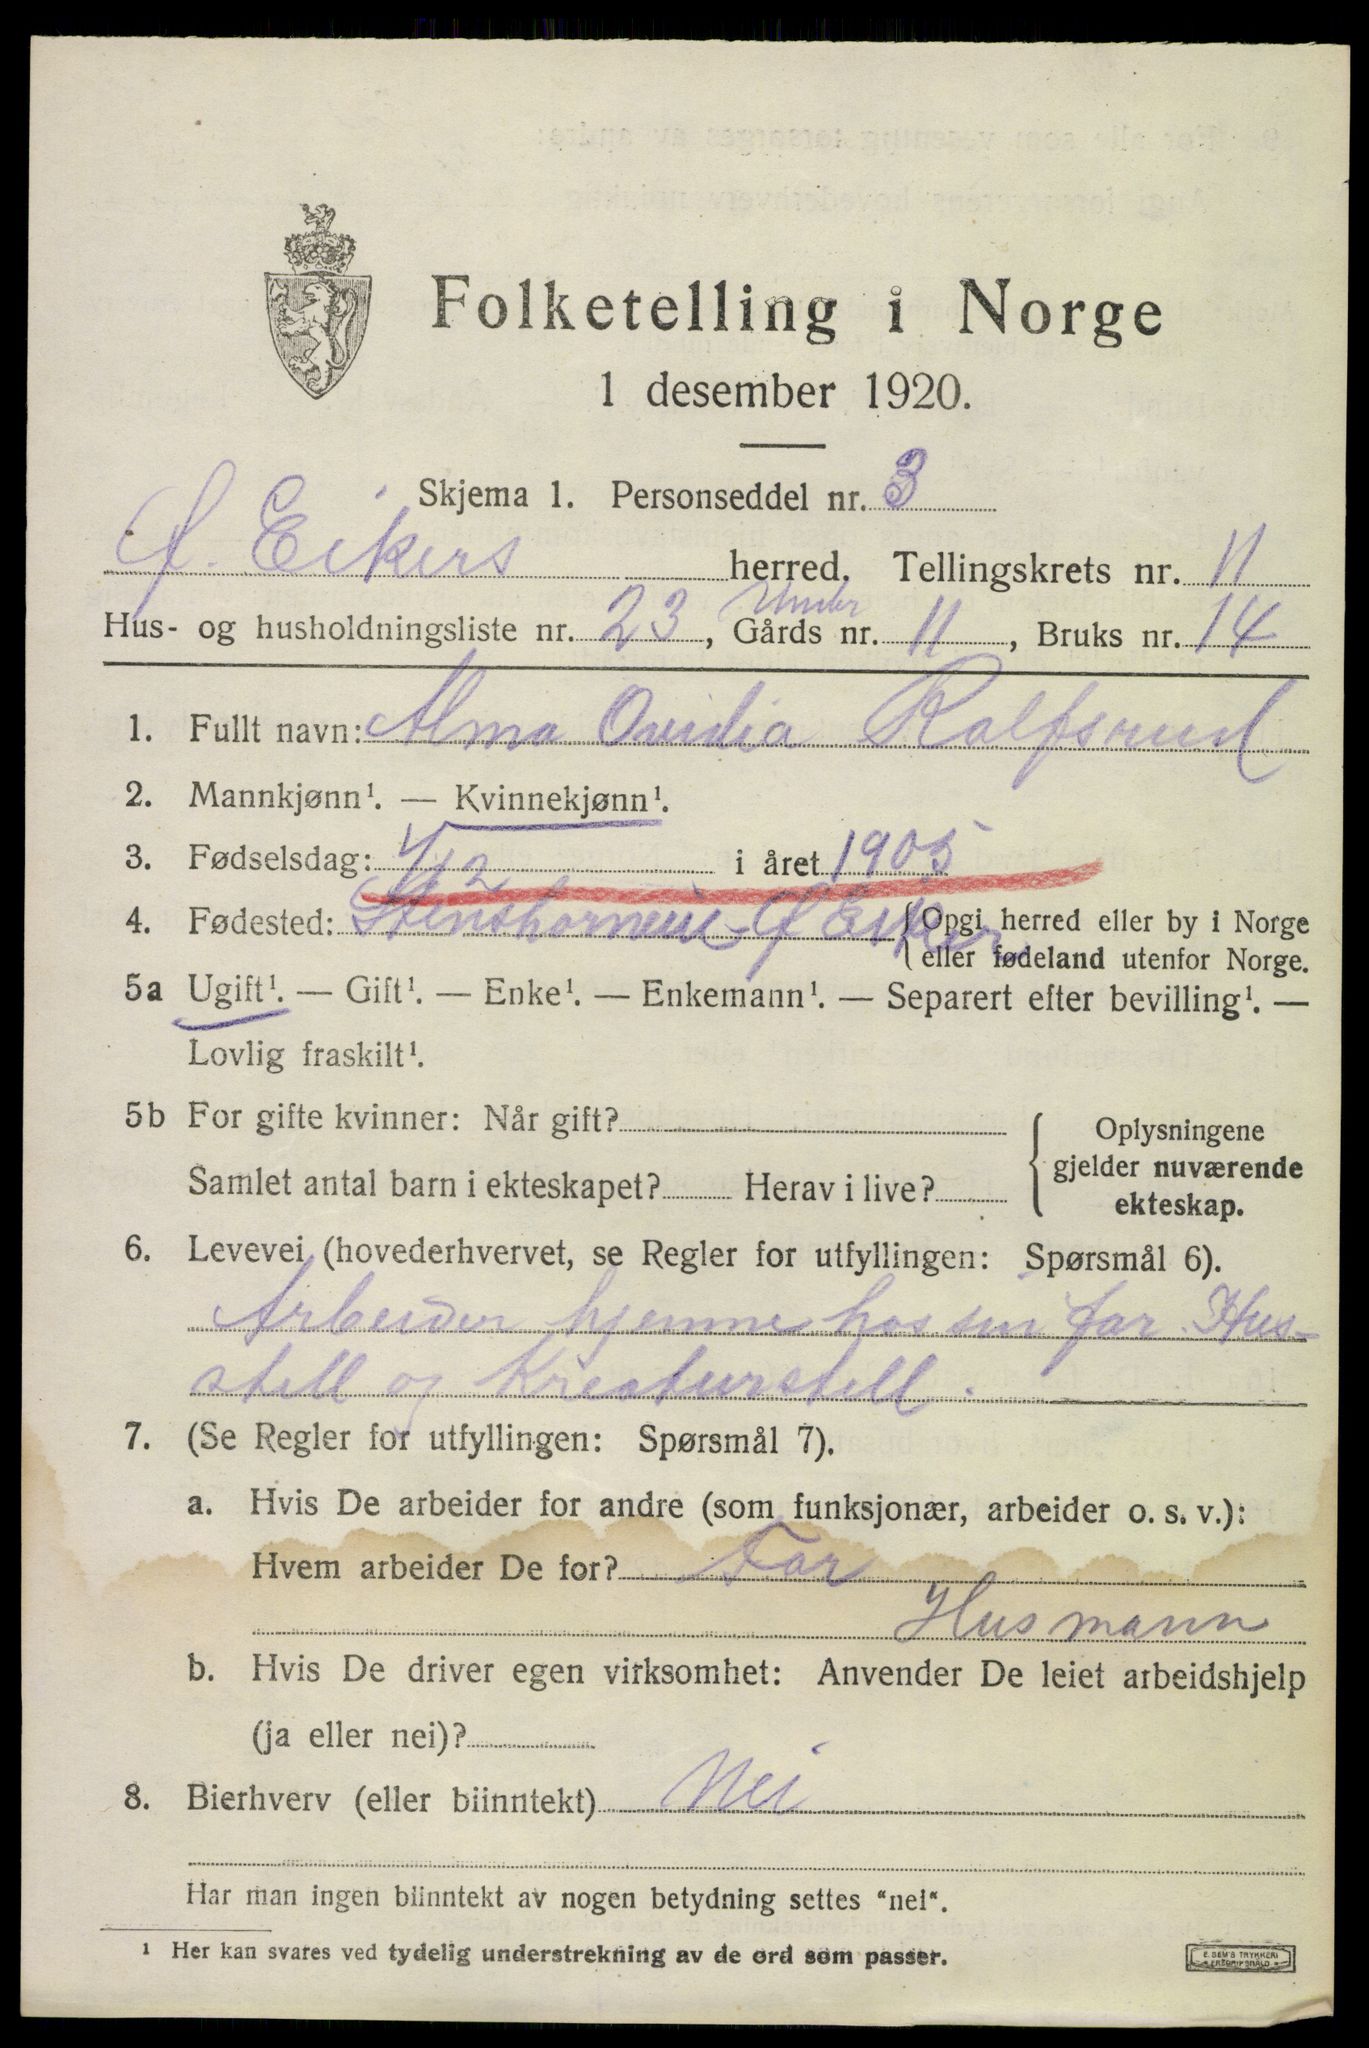 Folketelling i Norge
1 desember 1920.
Skjema 1. Personseddel nr. 3
Ø. Eikers herred. Tellingskrets nr. 11
Under
Hus- og husholdningsliste nr. 23, Gårds nr. 11, Bruks nr. 14
1. Fullt navn: Alma Ovidia Rolfsrud
2. Mannkjønn¹. — Kvinnekjønn¹.
3. Fødselsdag: 4/12 i året 1905
4. Fødested: Ø Eiker {Opgi herred eller by i Norge
eller fødeland utenfor Norge.
5a Ugift¹. — Gift¹. — Enke¹. — Enkemann¹. — Separert efter bevilling¹. —
Lovlig fraskilt¹.
5b For gifte kvinner: Når gift?
Samlet antal barn i ekteskapet? Herav i live?
{Oplysningene
gjelder nuværende
ekteskap.
6. Levevei (hovederhvervet, se Regler for utfyllingen: Spørsmål 6).
Arbeider hjemme hos sin far. Hus-
stell og Kreaturstell.
7. (Se Regler for utfyllingen: Spørsmål 7).
a. Hvis De arbeider for andre (som funksjonær, arbeider o. s. v.):
Hvem arbeider De for? Far
Husmann
b. Hvis De driver egen virksomhet: Anvender De leiet arbeidshjelp
(ja eller nei)?
8. Bierhverv (eller biinntekt) Nei
Har man ingen biinntekt av nogen betydning settes "nei".
¹ Her kan svares ved tydelig understrekning av de ord som passer.
E. SEM'S TRYKKERI
FREDRIKSHALD